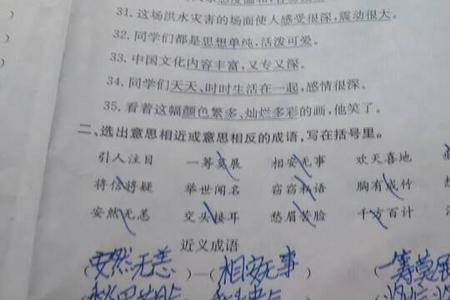 31. 这场洪水灾害的场面使人感受很深,震动很大。
32. 同学们都是思想单纯,活泼可爱。
33. 中国文化内容丰富,又专又深。
34. 同学们天天、时时生活在一起,感情很深。
35. 看着这幅颜色繁多、灿烂多彩的画,他笑了。
二、选出意思相近或意思相反的成语,写在括号里。
引人注目 一筹莫展 相安无事 欢天喜地
将信将疑 举世闻名 窃窃私语 胸有成竹
安然无恙 交头接耳 愁眉苦脸 千方百计
近义成语
(安然无恙)—(相安无事) (一筹莫展